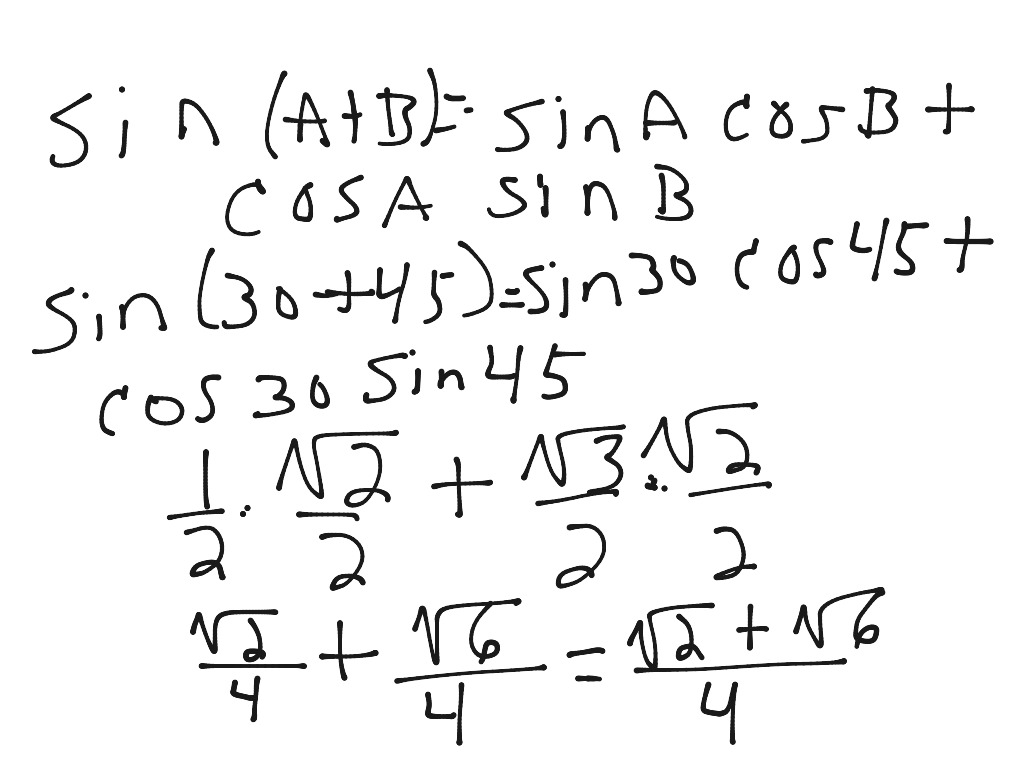 sin (A+B)= sin A cos B +
cos A sin B
sin (30+45)=sin 30 cos 45 +
cos 30 sin 45
1/2 · √2/2 + √3/2 · √2/2
√2/4 + √6/4 = √2 + √6/4